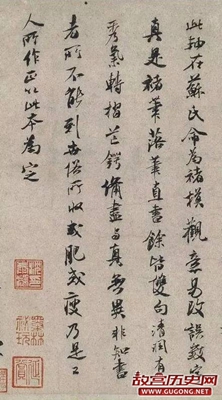 此軸在蘇氏命為褚摸觀意易改誤數字
真是褚筆落筆直書餘皆雙勾清潤有
秀氣轉摺芒鍔備盡与真無異非知書
者所不能到世俗所收或肥或瘦乃是工
人所作正以此本為定
故宫历史网